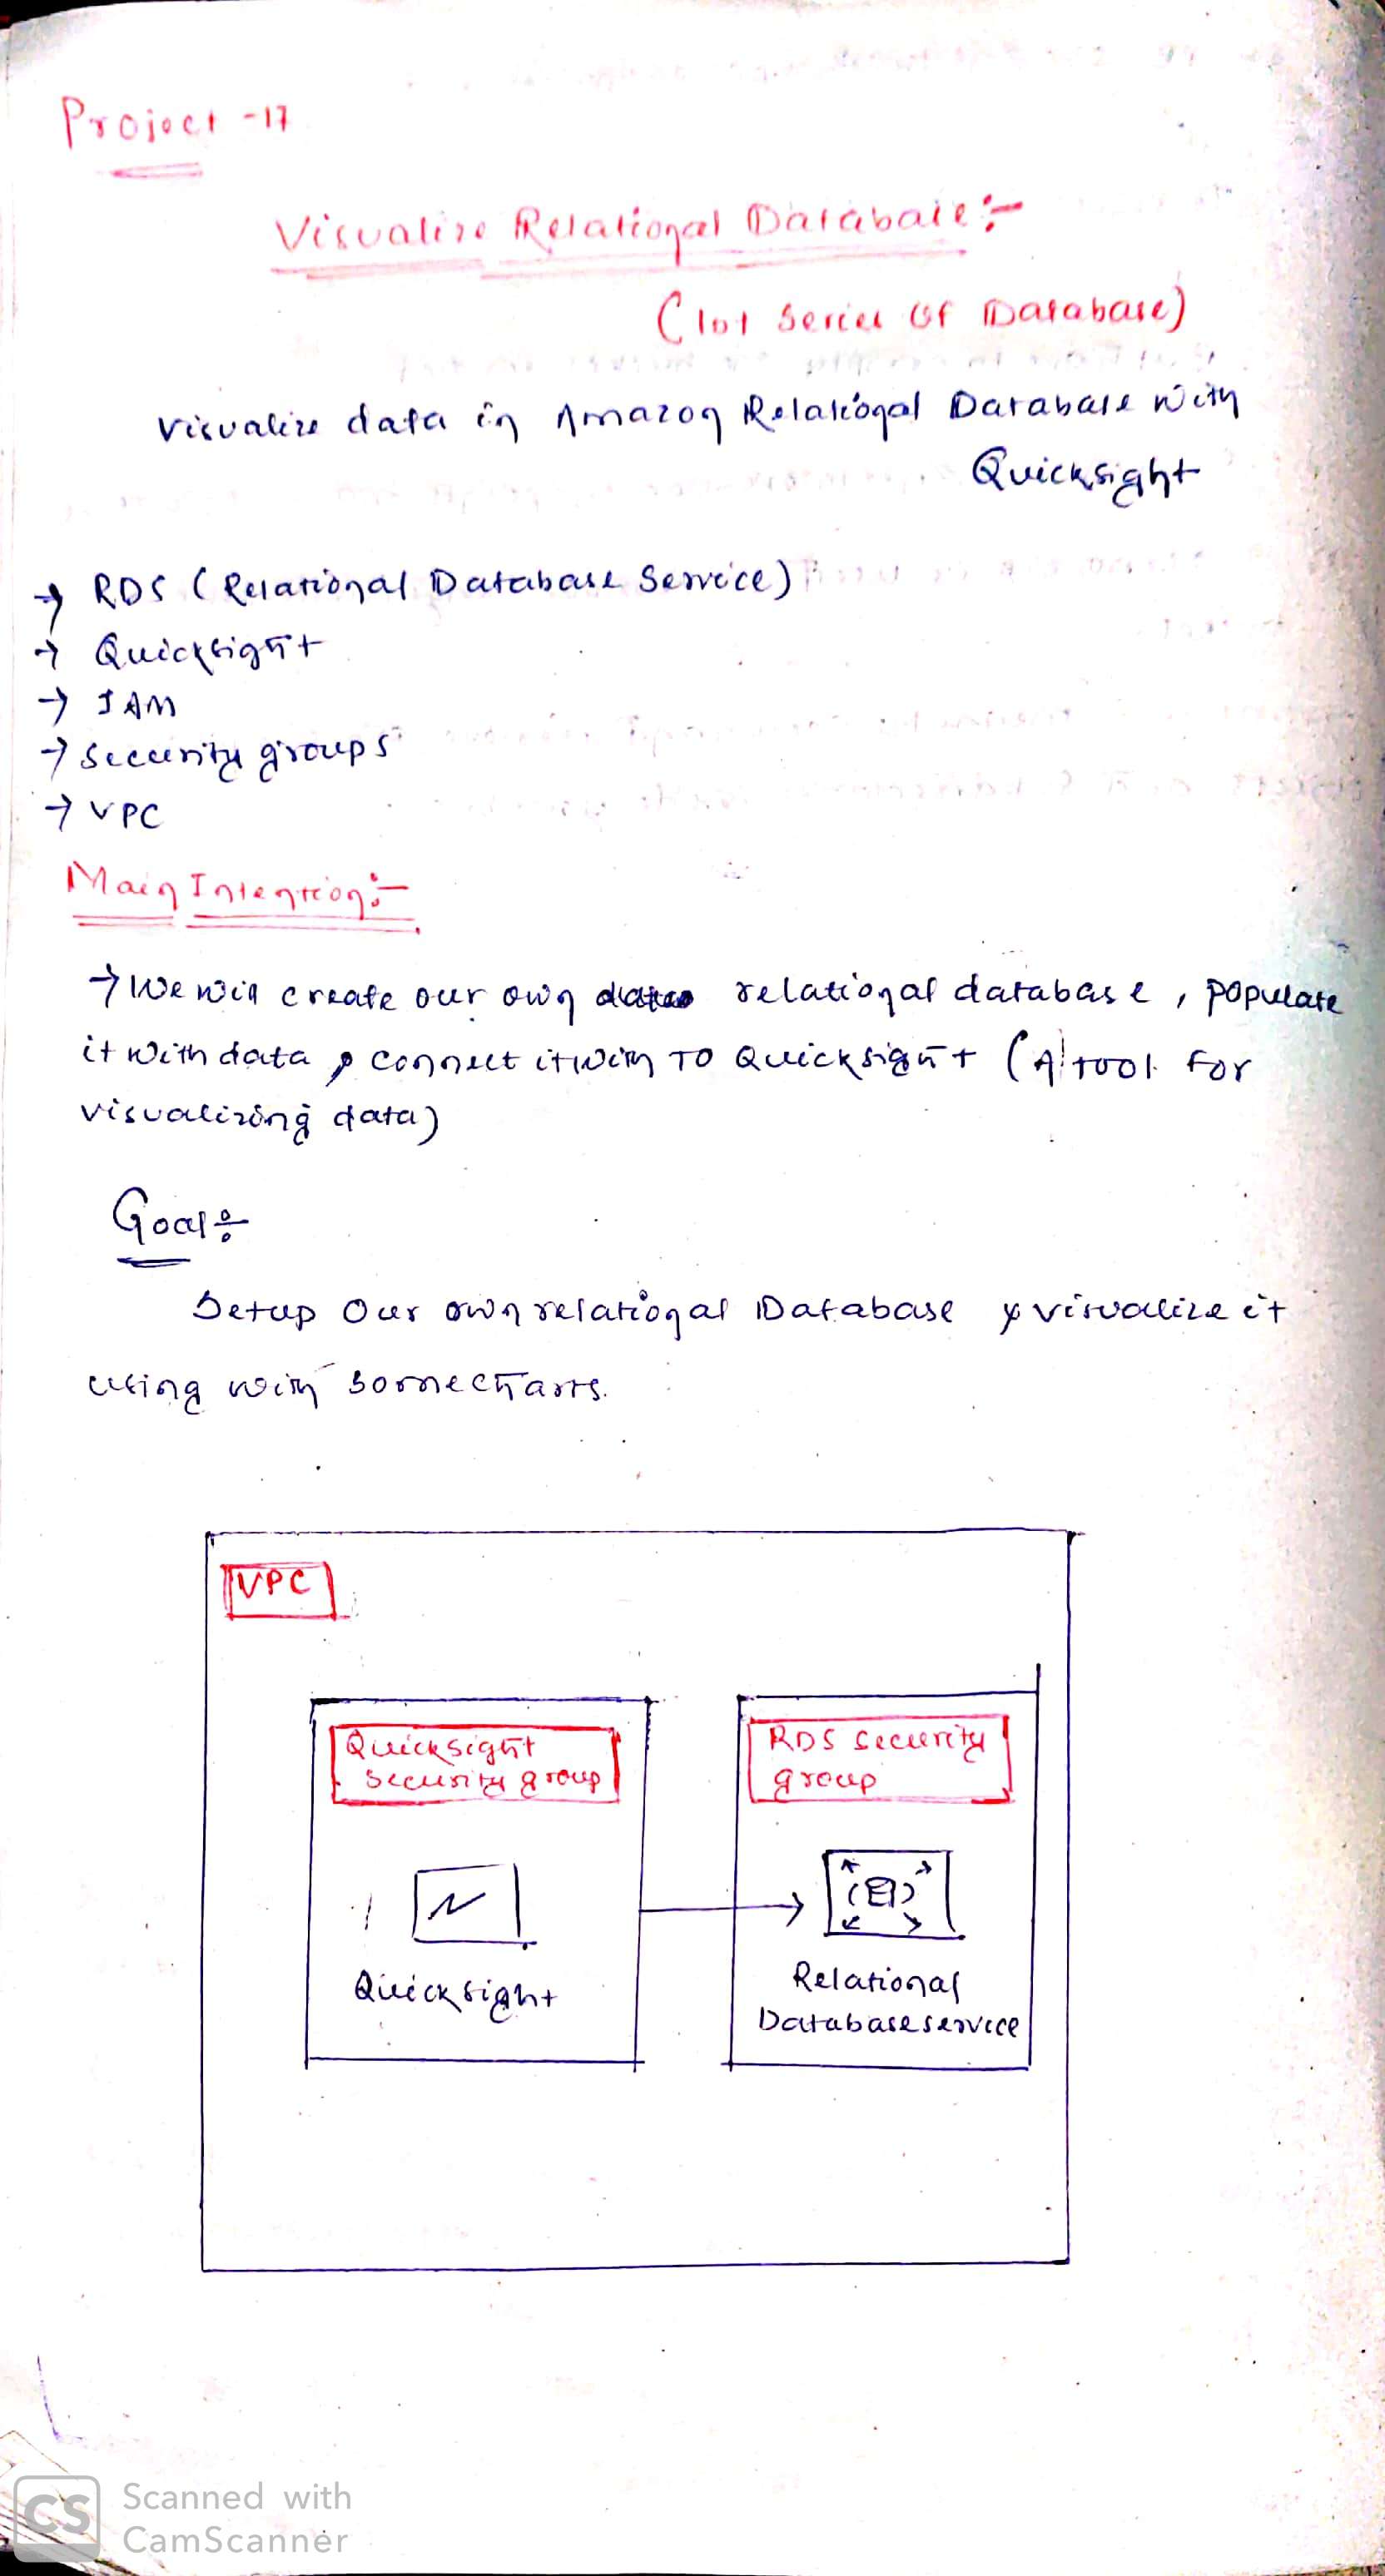 Project -17
Visualize Relational Database:-
(1st Series Of Database)
visualize data in Amazon Relational Database with
Quicksight
→ RDS (Relational Database Service)
→ Quicksight
→ IAM
→ Security groups
→ VPC
Main Intention:-
→ We will create our own relational database, populate
it with data & connect it with TO Quicksight (A tool for
visualizing data)
Goal:-
Setup Our own relational Database & visualize it
using with some charts.
VPC
Quicksight
Security group
RDS security
group
Quicksight
Relational
Database service
CS
Scanned with
CamScanner